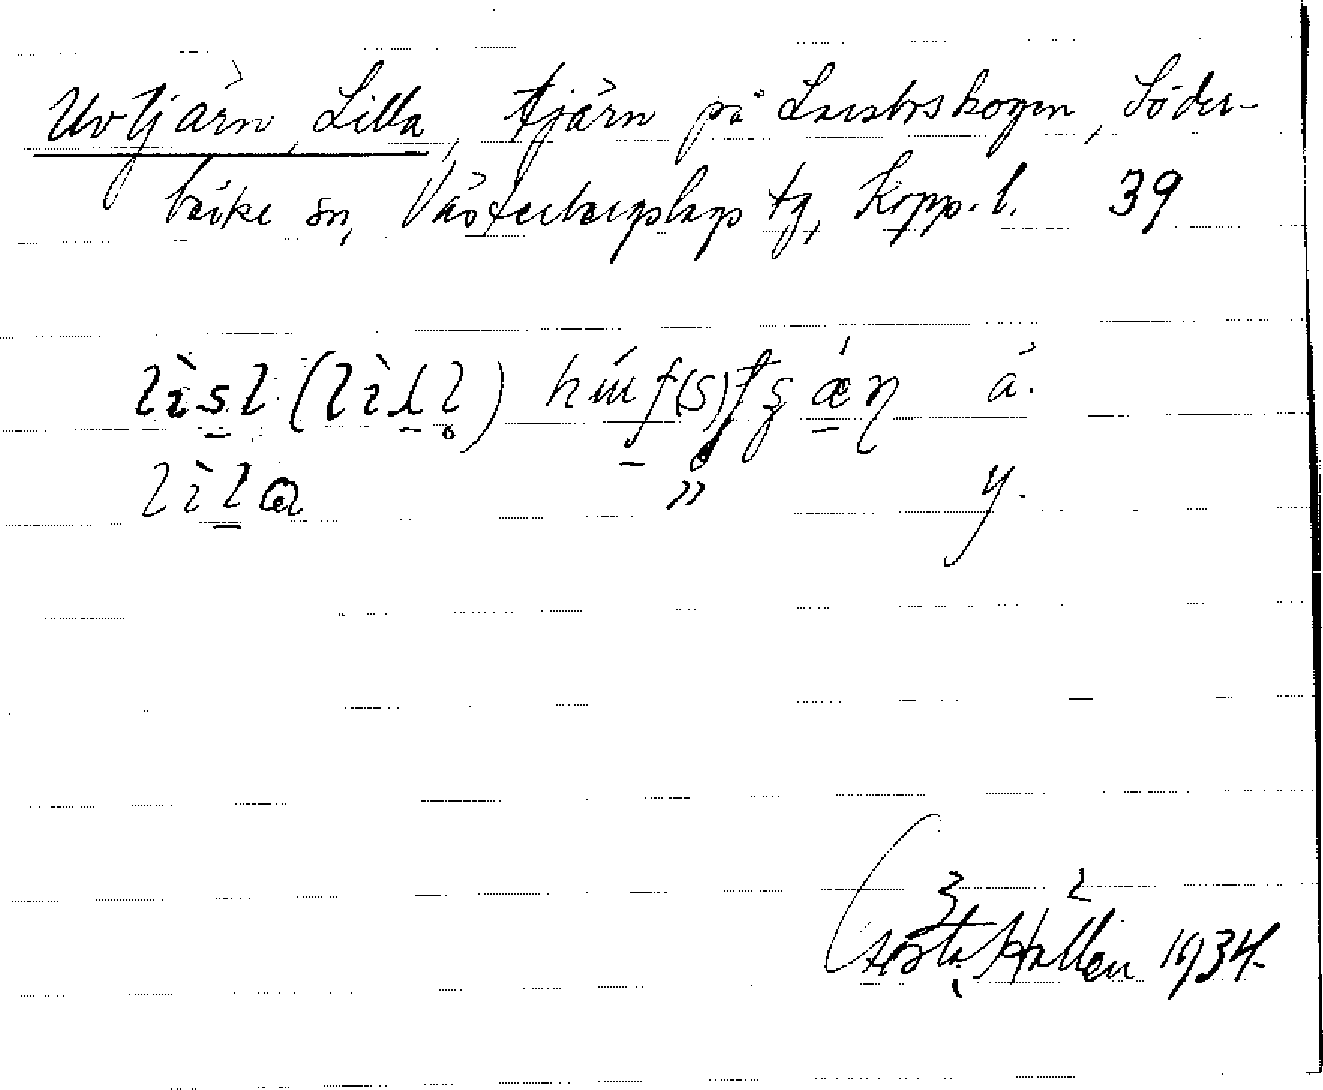 Uvtjärn, Lilla, tjärn på skogen, Söder-
bärke sn, Västerbergslags tg, Kopp. l. 39
lìsl (lìll) á.
lìla " y.
Gösta Hallén 1934.